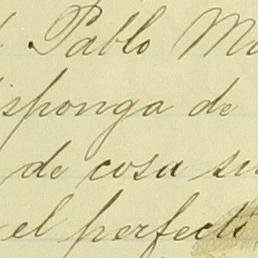 Pablo M
isponga de
de cosa su
el perfect